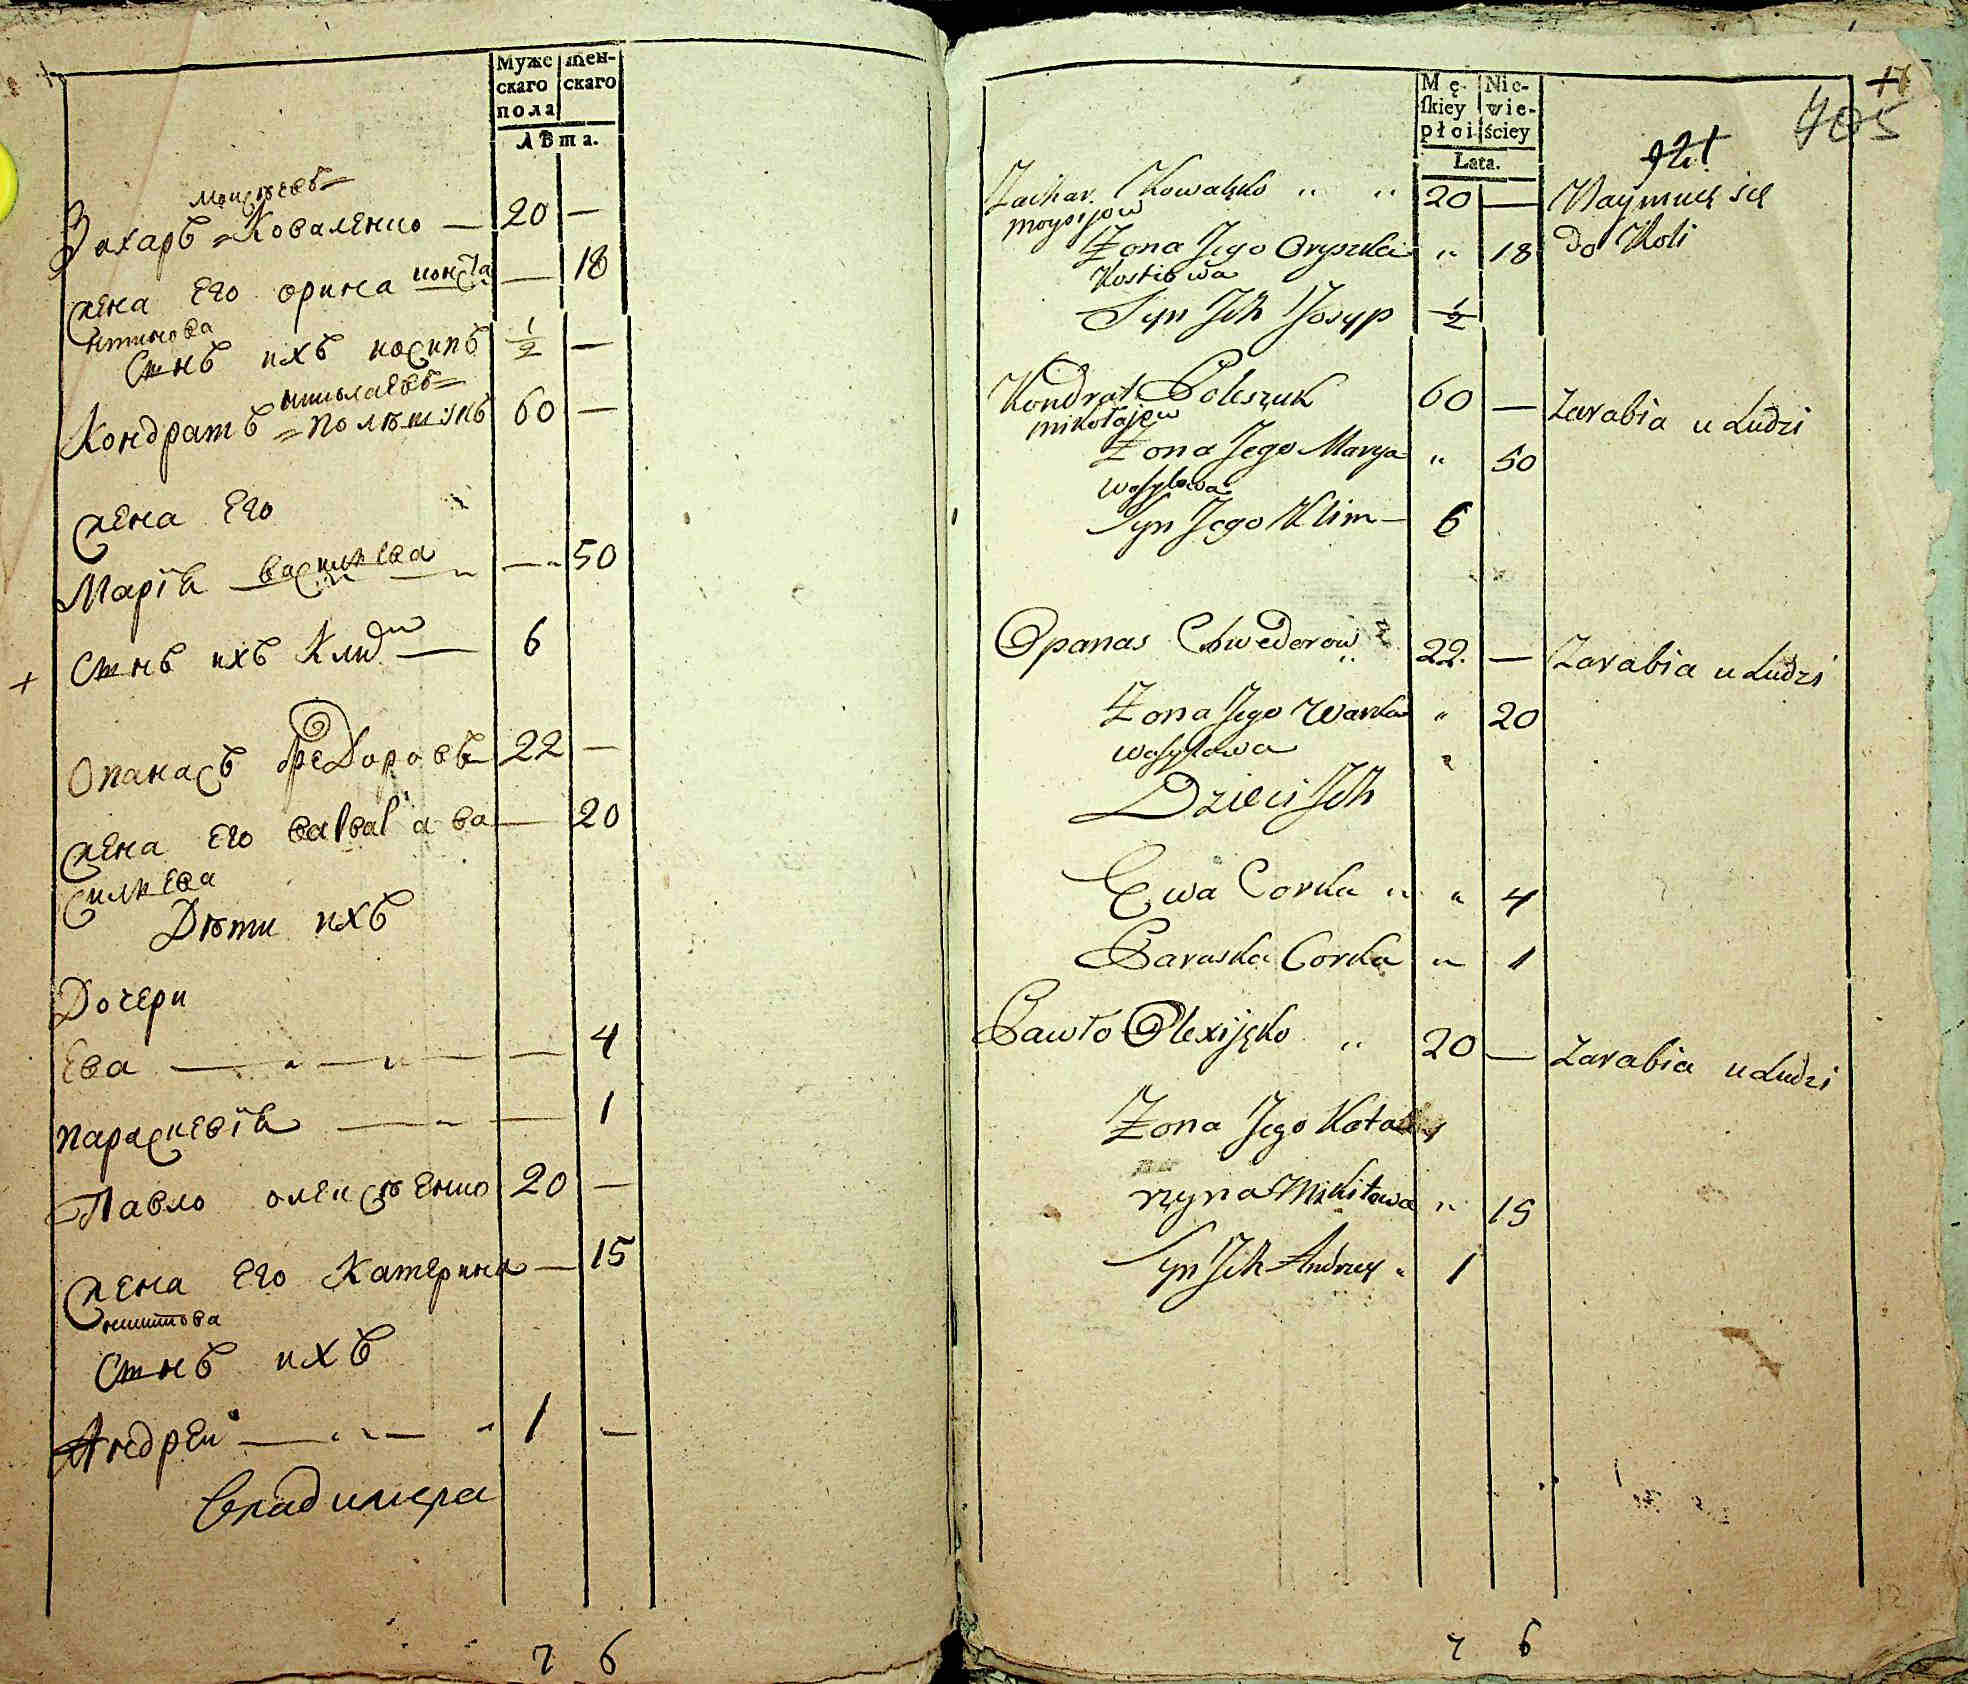 Муже скаго пола
женскаго
Лѣта.
Моисѣевъ
Захаръ Коваленко — 20 —
жена Его орина конста — 18
нтинова
Сынъ ихъ иосипъ ½ —
николаевъ
Кондратъ полѣшукъ 60 —
жена Его
Маріѣ василѣва — 50
Сынъ ихъ Клим — 6
Опанасъ Федоровъ 22 —
жена Его варвара ва — 20
силѣва
Дѣти ихъ
Дочери
Ева — 4
параскевіѣ — 1
Павло олексѣенко 20 —
жена Его Катерина — 15
никитова
Сынъ ихъ
Андреи — 1 —
Владимера
7 6
17
705
Męſkiey płci
Niewieściey
Lata.
Zachar Kowalęko 20 — Naymuię się
moysijow
Żona Jego Oryszka 18 do Koli
Kostiowa
Syn Jch Josyp ½
Kondrat Poleszuk 60 — Zarabia u Ludzi
mikołajow
Żona Jego Marya 50
wasylowa
Syn Jego Klim — 6
Opanas Chwedorow 22. — Zarabia u Ludzi
Żona Jego Warka 20
wasylowa
Dzieci Jch
Ewa Corka 4
Paraska Corka 1
Pawło Olexijęko 20 — Zarabia u Ludzi
Żona Jego Kata
rzyna Mikitowa 15
Syn Jch Andrzey 1
7 6